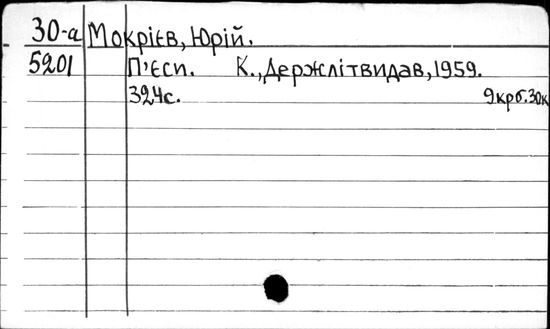 30-а Мокрієв, Юрій.
5201 П'єси. К., Держлітвидав, 1959.
324с. 9крб. 30к